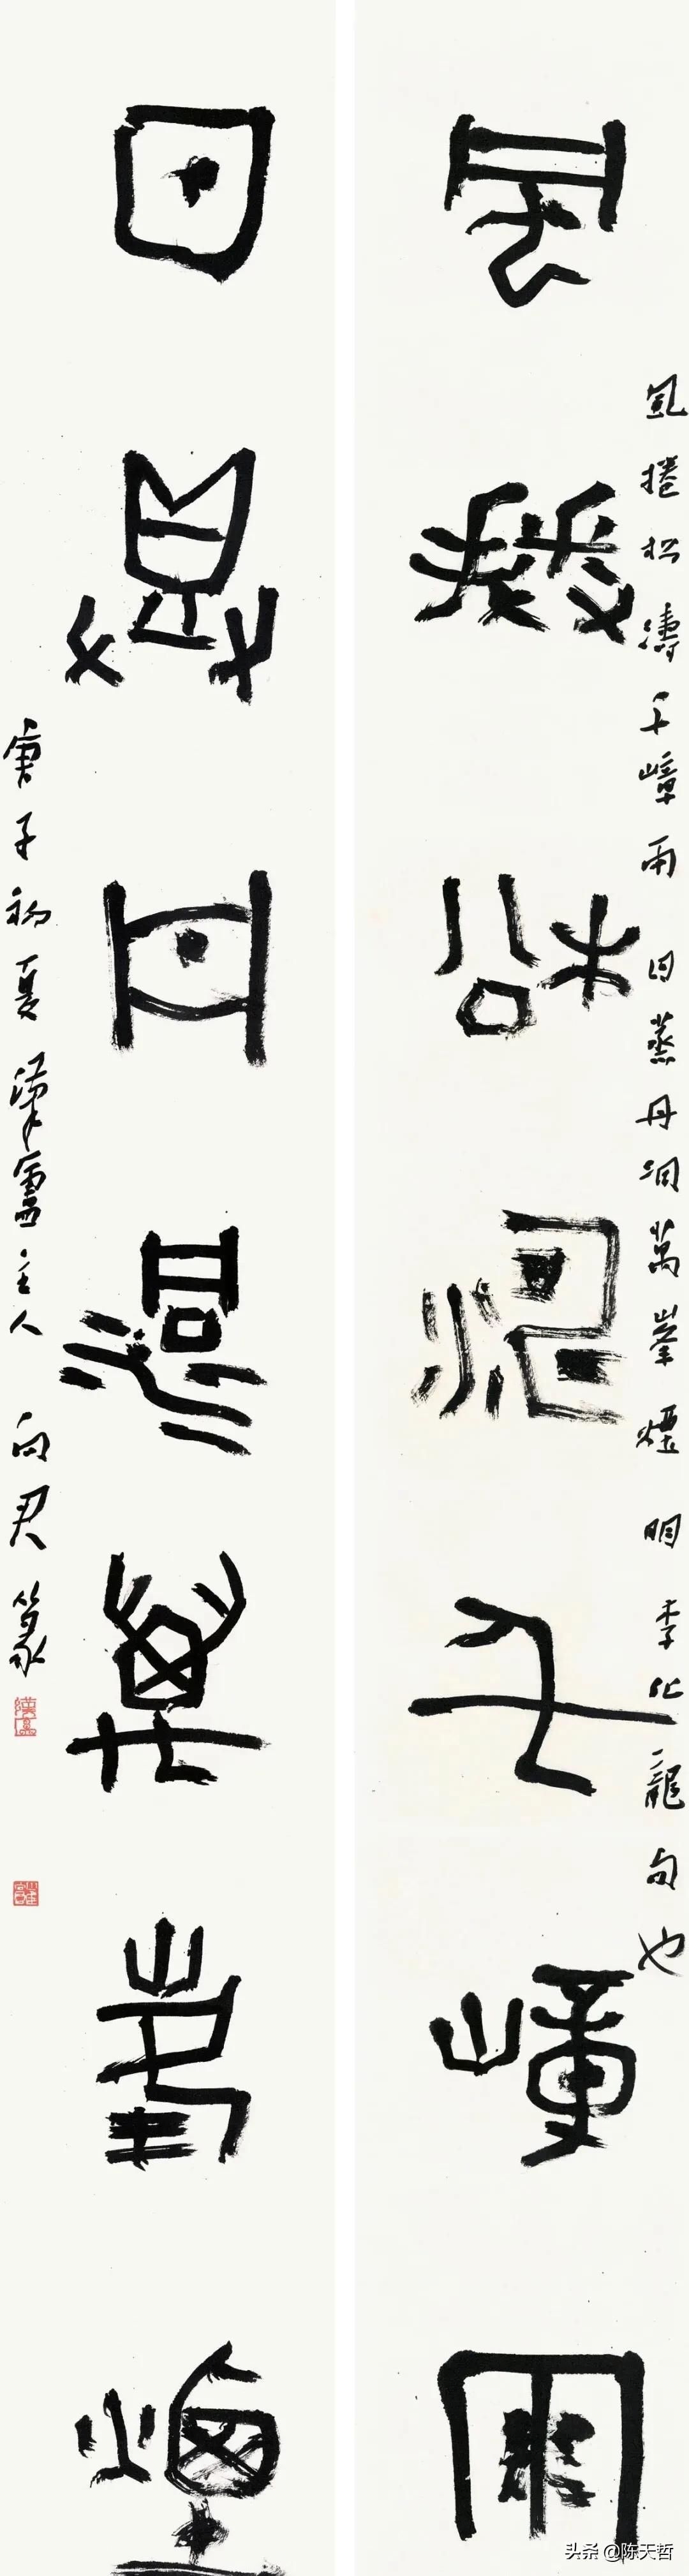 風捲松濤千嶂雨
風捲松濤千嶂雨 日蒸丹洞萬峯煙 明 李化龍句也
日蒸丹洞萬峯煙
庚子初夏漢盧主人 向君篆
头条 @陈天哲